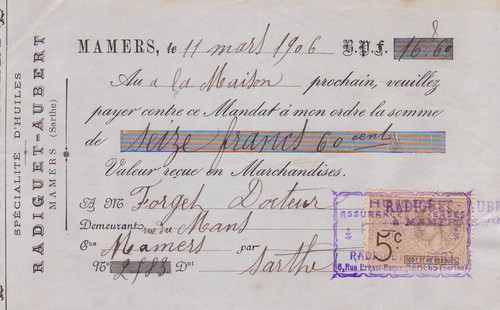 SPÉCIALITÉ D'HUILES
RADIGUET-AUBERT
MAMERS (Sarthe)
MAMERS, le 11 mars 1906 B.P.F. 16.60
8
Au à la Maison prochain, veuillez
payer contre ce Mandat à mon ordre la somme
de seize francs 60 cent
Valeur reçue en Marchandises.
A M Forget Docteur
Demeurant rue du Mans
Cne Mamers par
Sarthe
No 2983 Dt
ASSURANCES DIVERSES
RADIGUET-AUBERT
À MAMERS
5 c.
RADI
6, Rue Ernest-Renan, MAMERS (Sarthe)